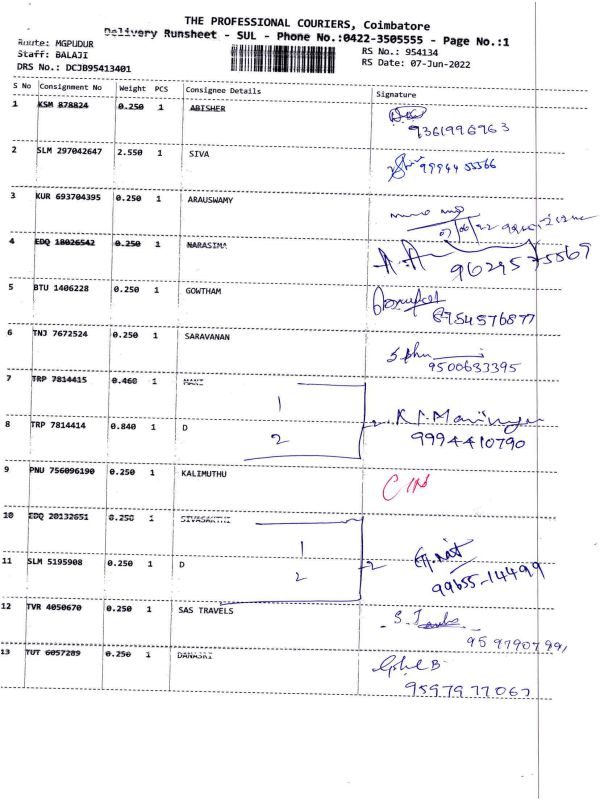 THE PROFESSIONAL COURIERS, Coimbatore
Delivery Runsheet - SUL - Phone No.:0422-3505555 - Page No.:1
Route: MGPUDUR
Staff: BALAJI
RS No.: 954134
DRS No.: DCJB95413401
RS Date: 07-Jun-2022
S No Consignment No Weight PCS Consignee Details Signature
1 KSM 878824 0.250 1 ABISHER
9361996963
2 SLM 297042647 2.550 1 SIVA
9994455566
3 KUR 693704395 0.250 1 ARAUSWAMY
4 EDQ 18026542 0.250 1 NARASIMA
9629575569
5 BTU 1406228 0.250 1 GOWTHAM
8754576877
6 TNJ 7672524 0.250 1 SARAVANAN
9500633395
7 TRP 7814415 0.460 1 MANI
1
8 TRP 7814414 0.840 1 D
2
9994410790
9 PNU 756096190 0.250 1 KALIMUTHU
10 EDQ 20132651 0.250 1 SIVASAKTHI
1
11 SLM 5195908 0.250 1 D
2 2
99655-14499
12 TVR 4050670 0.250 1 SAS TRAVELS
9597907991
13 TUT 6057289 0.250 1 DANASRI
9597977067